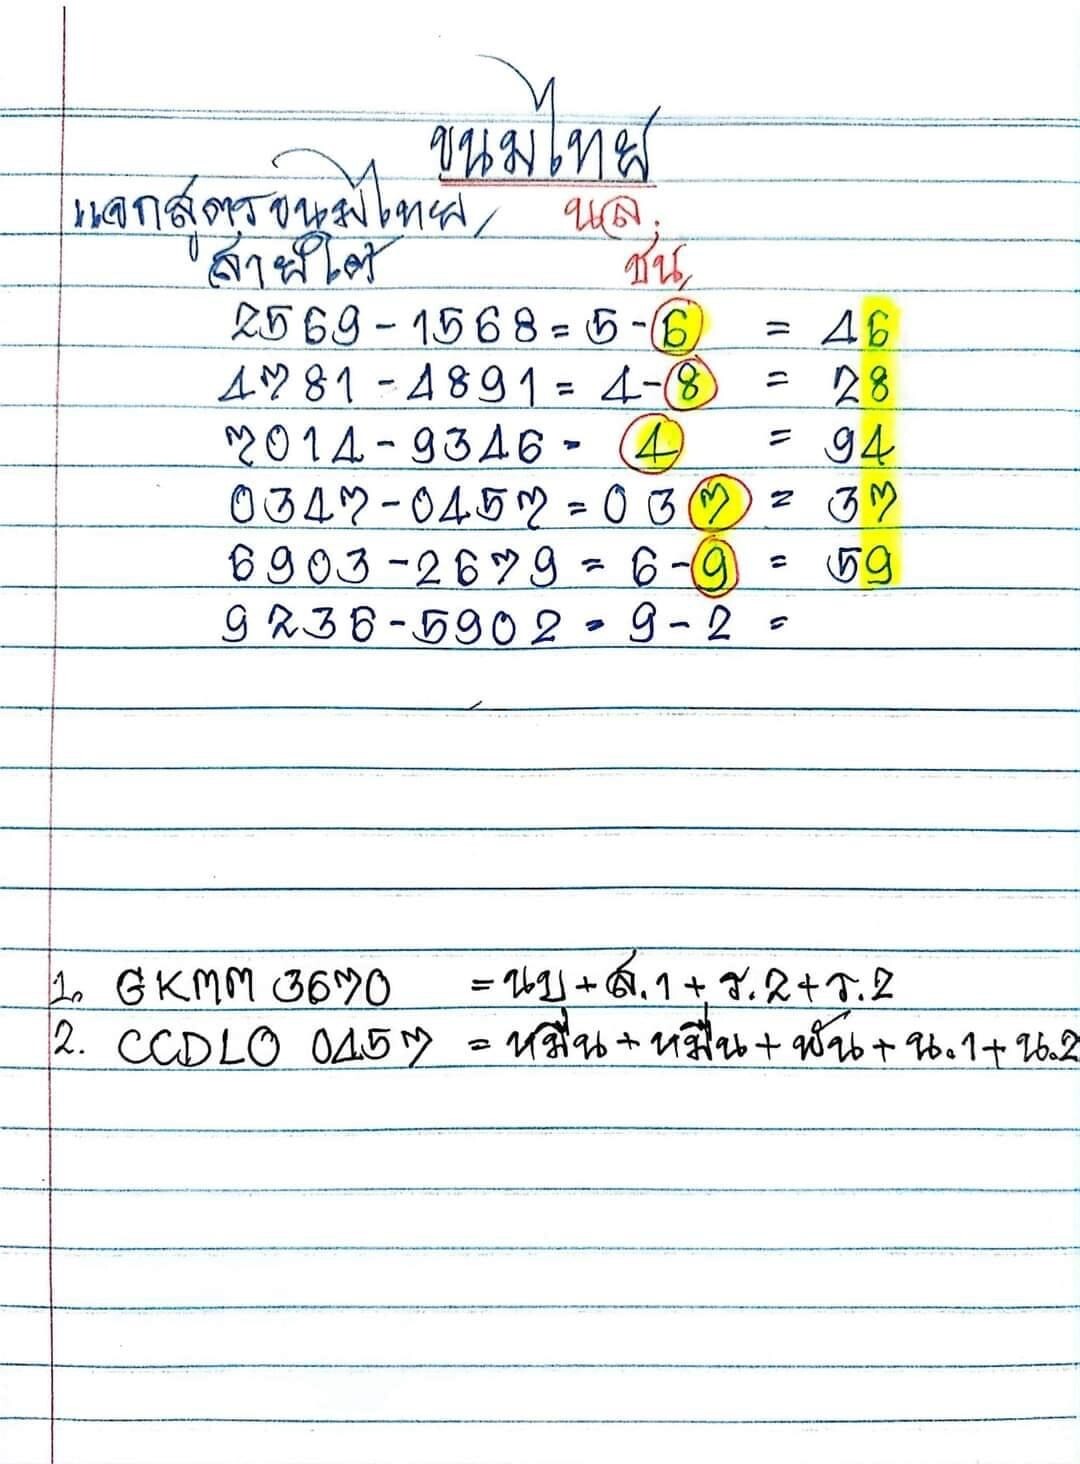 ขนมไทย
แจกสูตรขนมไทย นล.
สายใต้ ชน
2569-1568=5-6 = 46
4781-4891=4-8 = 28
7014-9346- 4 = 94
0347-0457=037 = 37
6903-2679=6-9 = 59
9236-5902-9-2 =
1. GKMM 3670 =นบ+ส.1+ร.2+ร.2
2. CCDLO 0457 =หมื่น+หมื่น+พัน+น.1+น.2